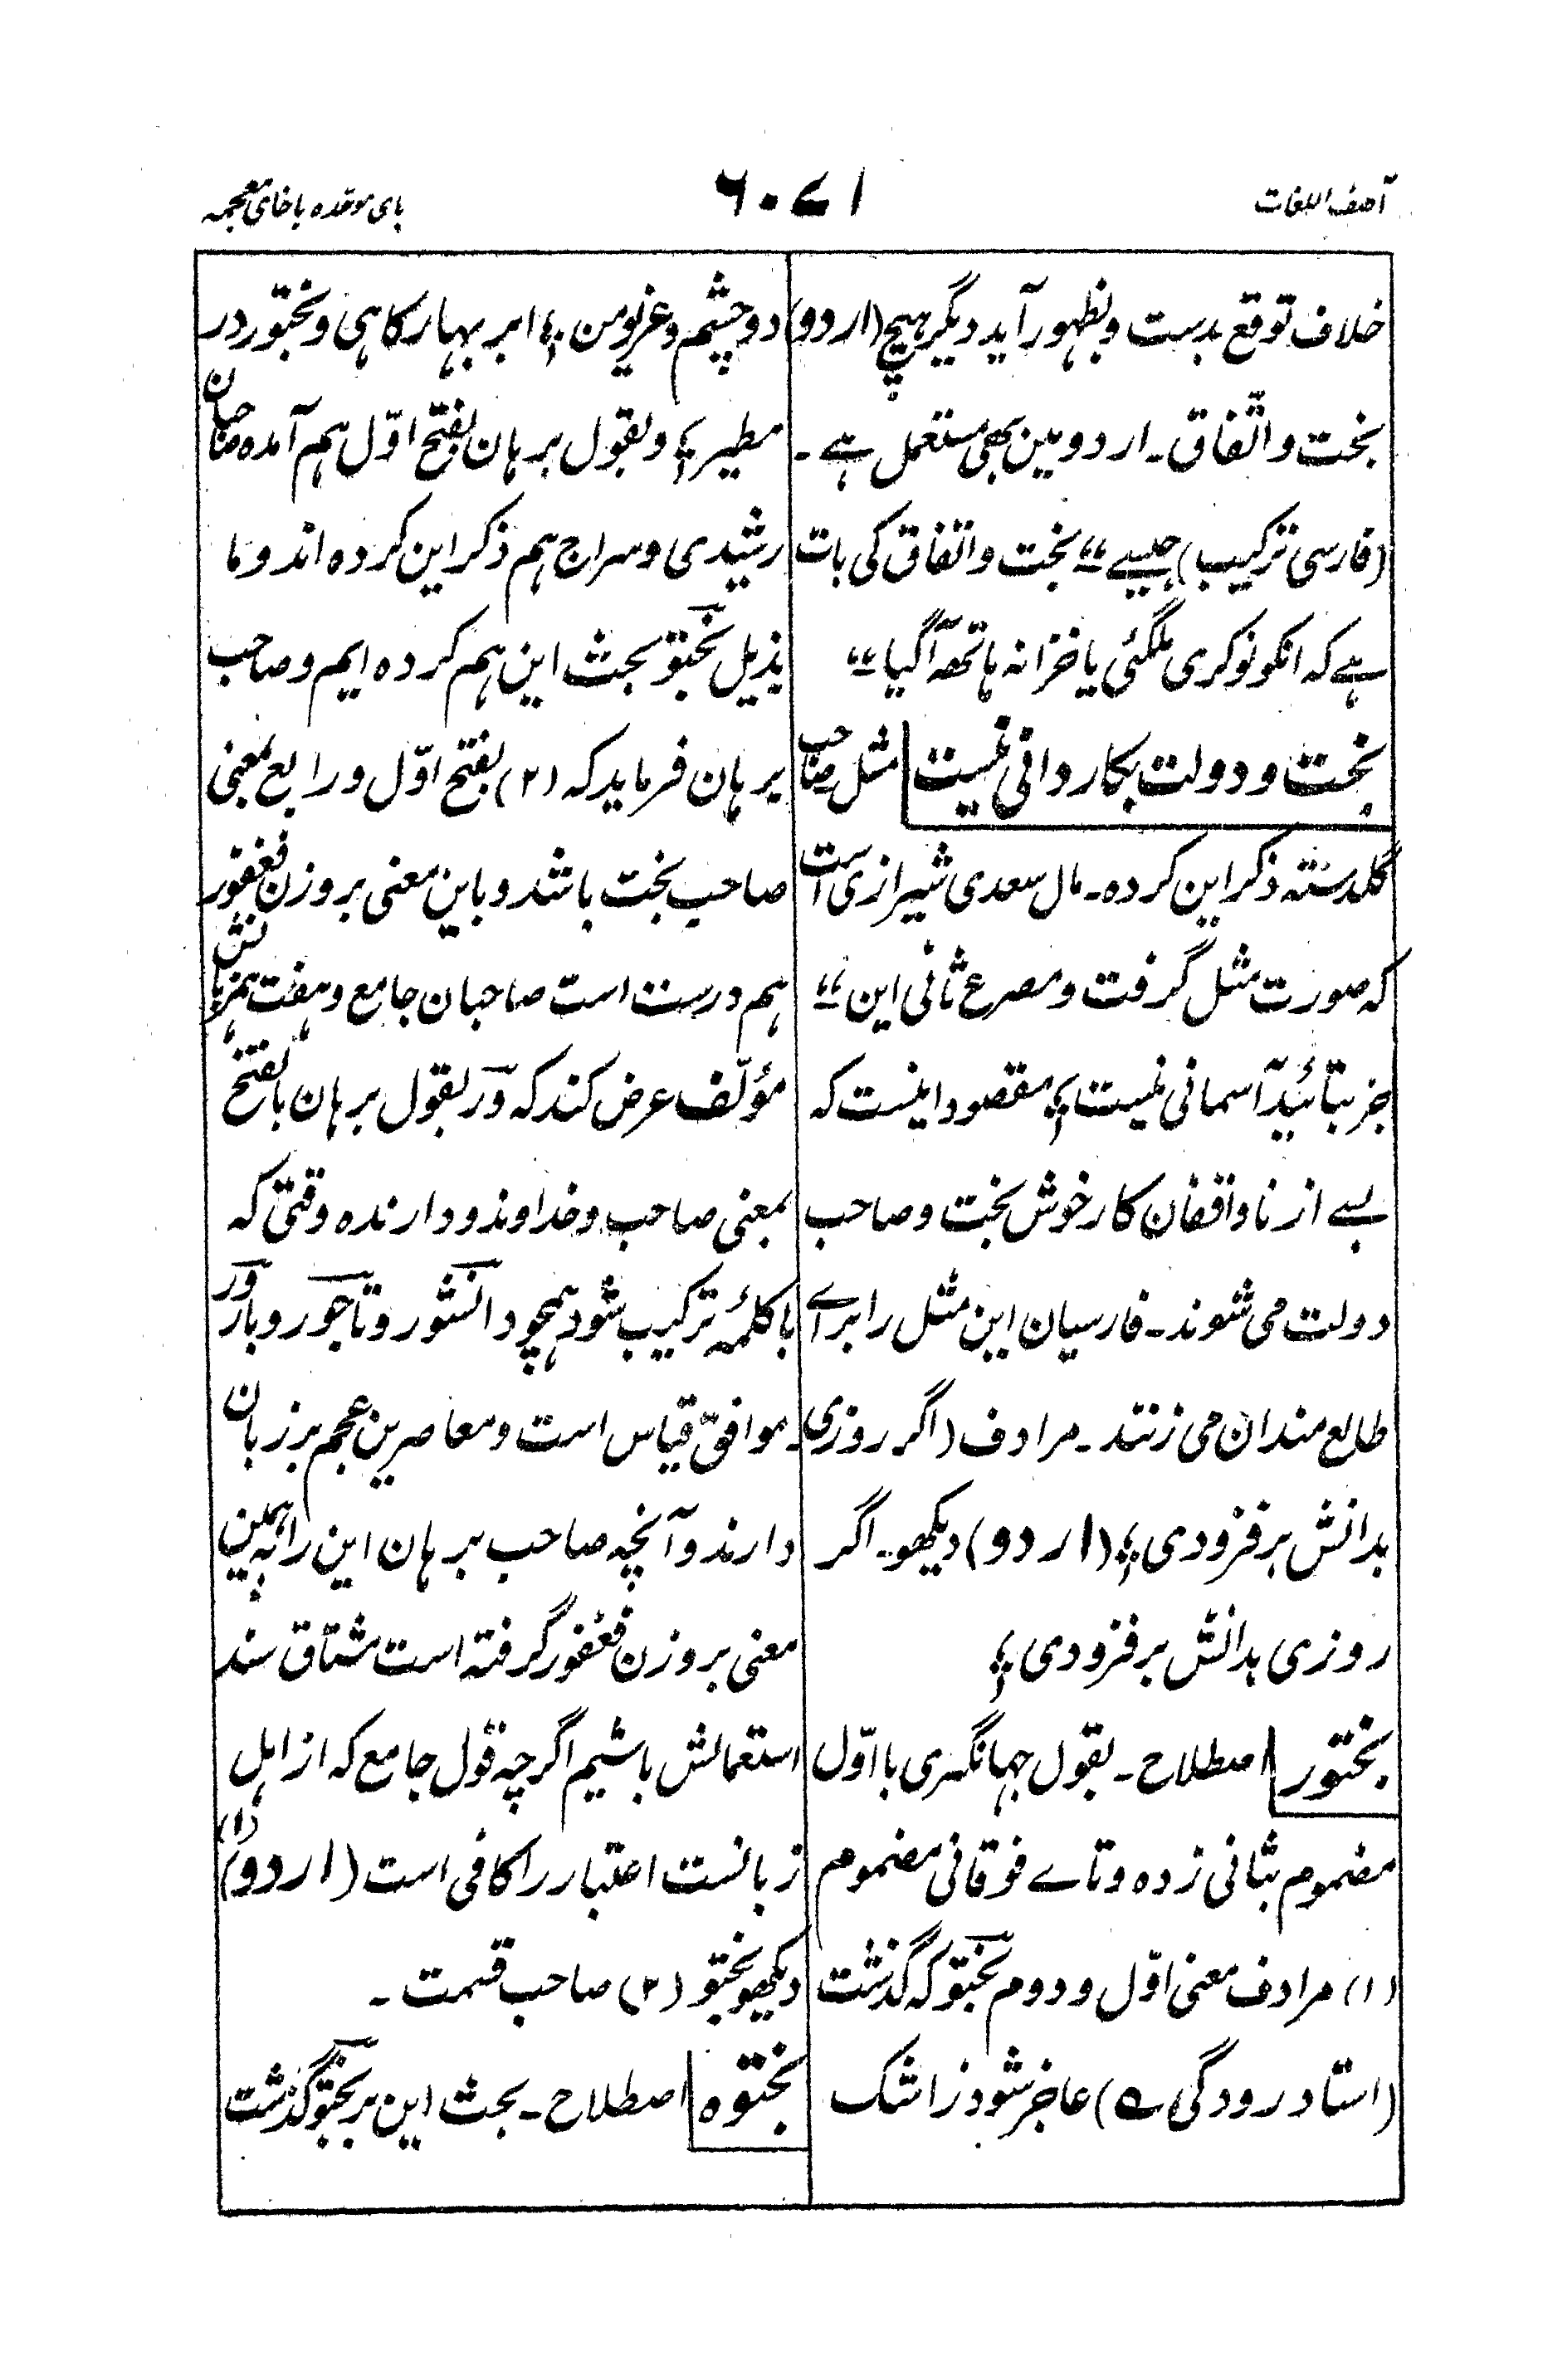 آصف اللغات
۱۷۰۶
بای موحّده باخای معجمه
خلاف توقع بدست و بظہور آید دیگر ہیچ (اردو)
بخت و اتّفاق ۔ اردو مین بھی مستعمل ہے ۔
(فارسی ترکیب) جیسے ‘‘ بخت و اتفاق کی بات
ہے کہ انکو نوکری ملگئی یا خزانہ ہاتھہ آگیا ‘‘
بخت و دولت بکار دانی نیست مثل صاحب
گلدستہ ذکر این کردہ ۔ مال سعدی شیرازی است
کہ صورت مثل گرفت و مصرع ثانی این ‘‘
جز بتائید آسمانی نیست ؛ مقصود اینست کہ
بسے از ناواقفان کار خوش بخت و صاحب
دولت می شوند ۔ فارسیان این مثل را براے
طالع مندان می زنند ۔ مرادف (اگر روزی
بدانش بر فزودی ؛ (اردو) دیکھو ۔ اگر
روزی بدانش بر فزودی ؛
بختور اصطلاح ۔ بقول جہانگیری با اوّل
مضموم بثانی زدہ و تاے فوقانی مضموم
(۱) مرادف معنی اوّل و دوم بختو کہ گذشت
(استاد رودگی ے) عاجز شود ز اشک
دو چشم و غریو من ؛ ابر بہار کاہی و بختور در
مطیر ؛ و بقول برہان بفتح اوّل ہم آمدہ صاحبان
رشیدی و سراج ہم ذکر این کردہ اند و ما
بذیل بختو بحث این ہم کردہ ایم و صاحب
برہان فرماید کہ (۲) بفتح اوّل و رابع بمعنی
صاحب بخت باشد و باین معنی بر وزن فغفور
ہم درست است صاحبان جامع و ہفت ہمزبانش
مؤلّف عرض کند کہ ور بقول برہان بالفتح
بمعنی صاحب و خداوند و دارندہ وقتی کہ
با کلمۂ ترکیب شود ہمچو دانشور و تاجور و بارور
موافق قیاس است و معاصرین عجم بر زبان
دارند و آنچہ صاحب برہان این را بہ ہمین
معنی بر وزن فغفور گرفتہ است مشتاق سند
استعمالش باشیم اگرچہ قول جامع کہ از اہل
زبانست اعتبار را کافی است (اردو) (۱)
دیکھو بختو (۲) صاحب قسمت ۔
بختوہ اصطلاح ۔ بحث این بر بختو گذشت